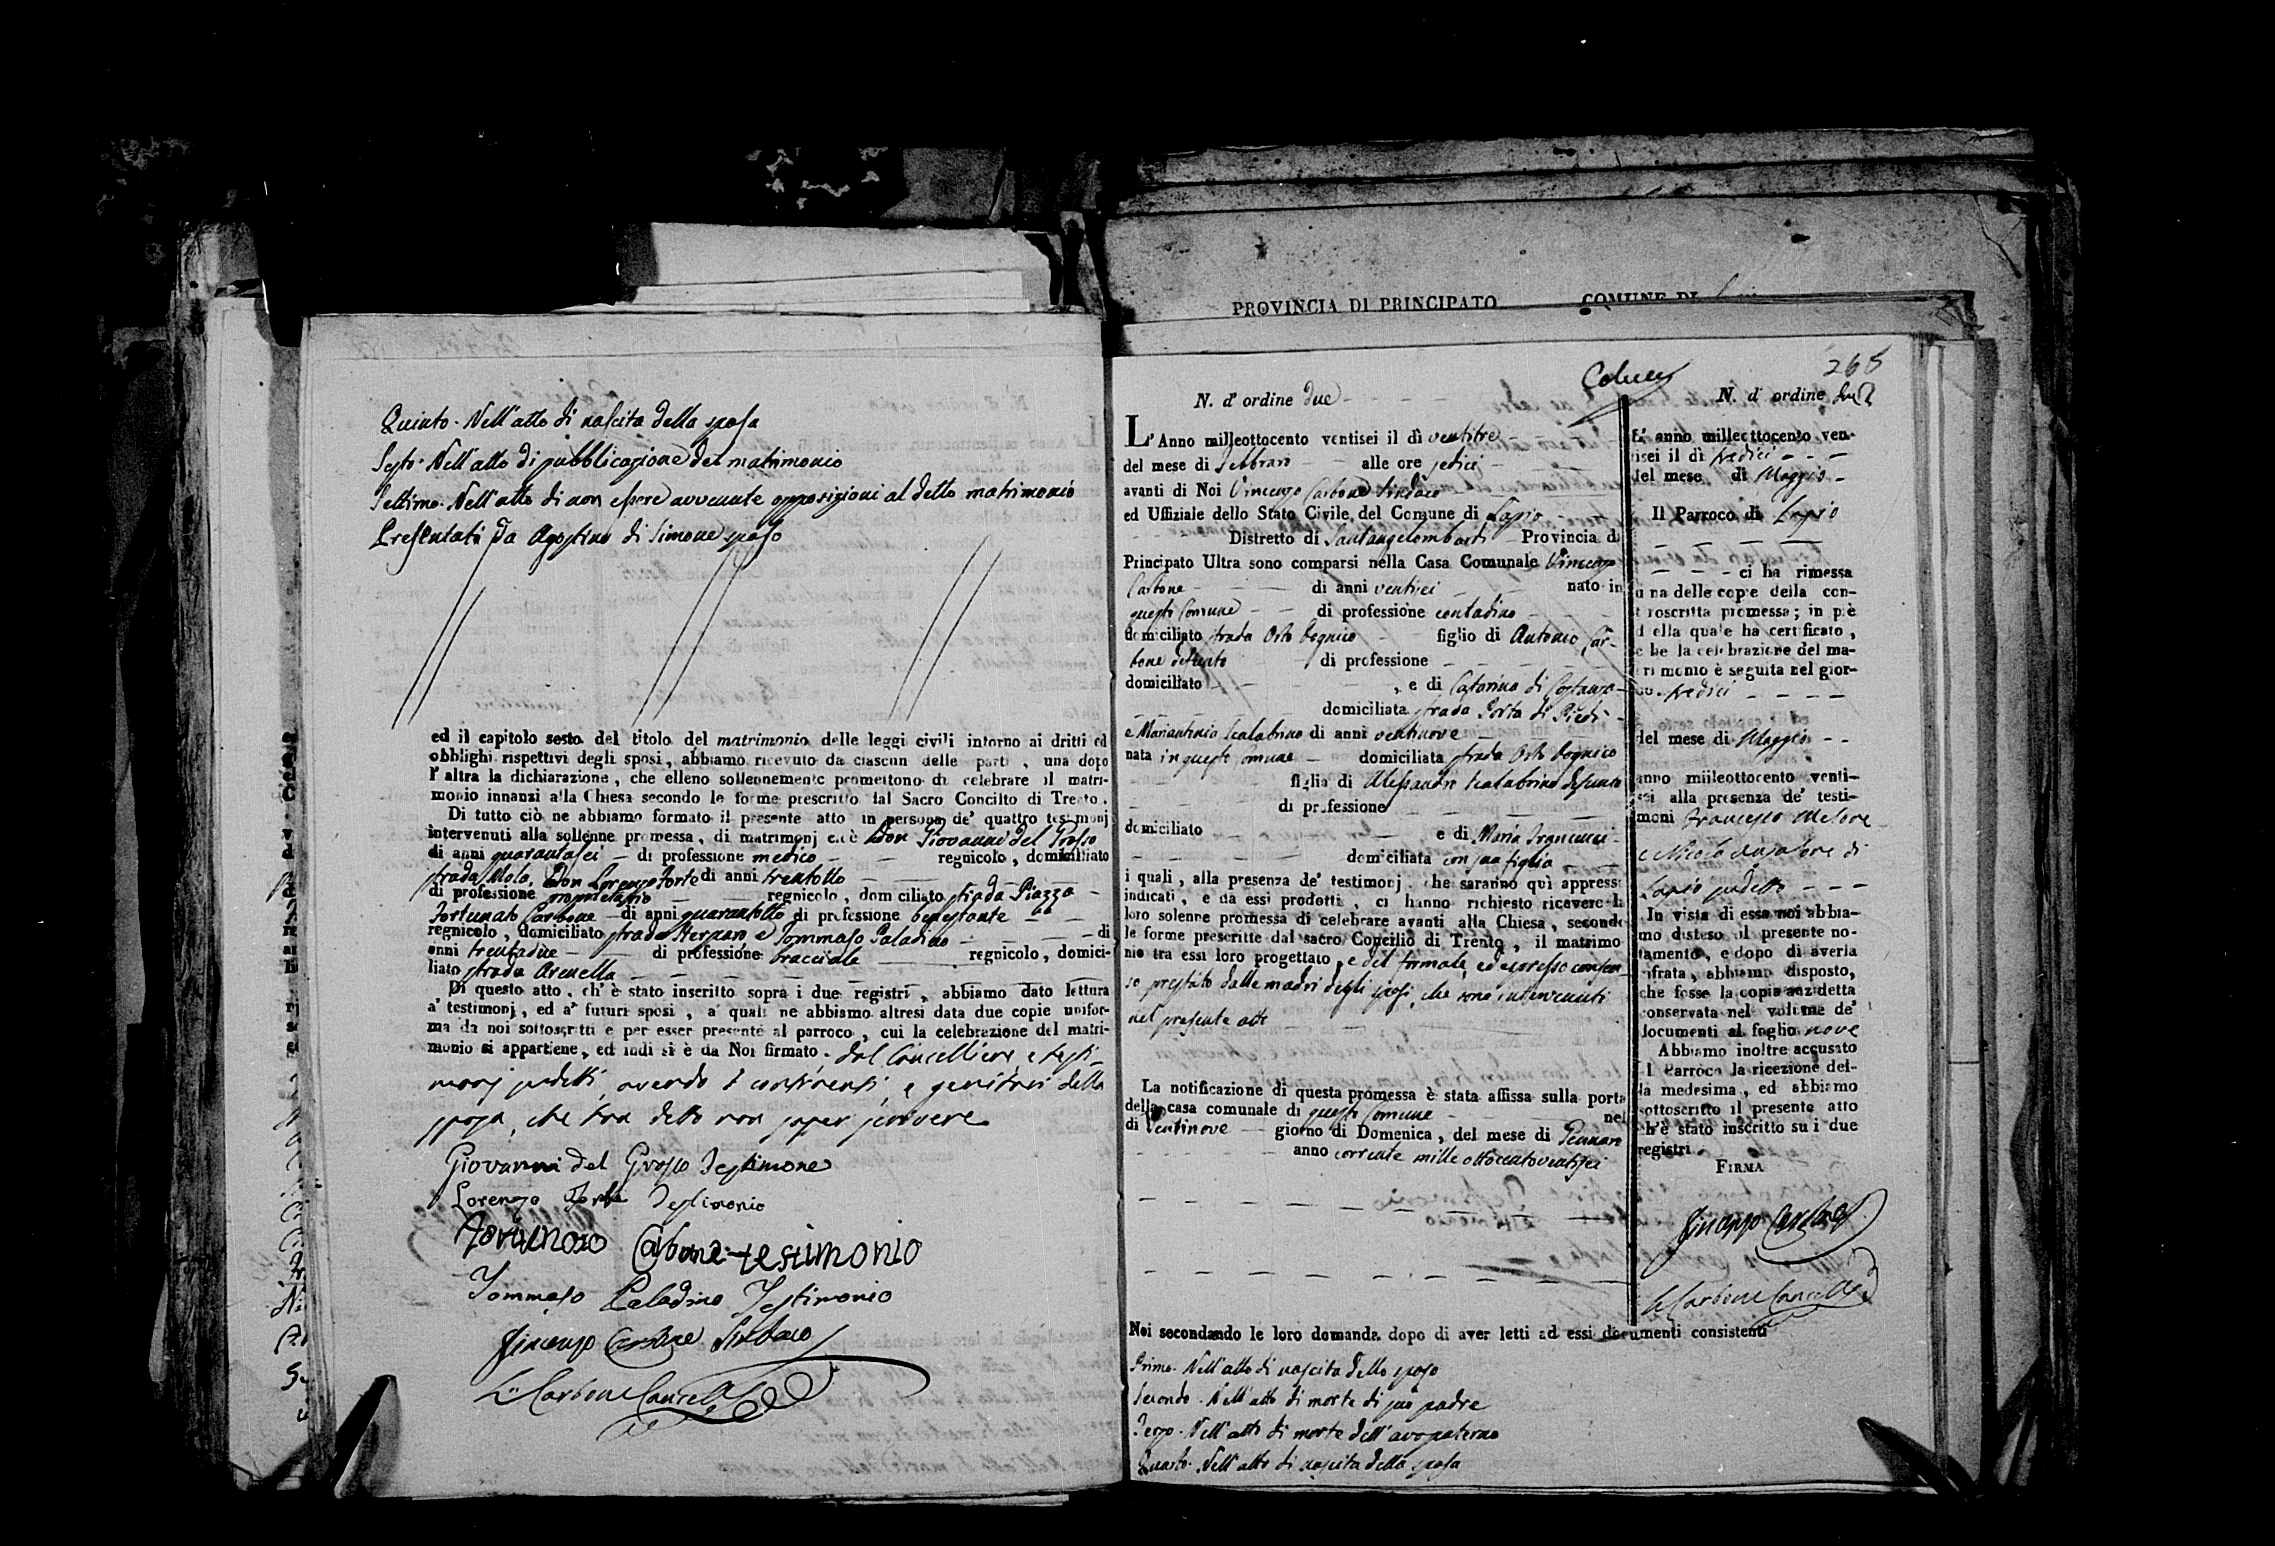 PROVINCIA DI PRINCIPATO COMUNE DI
Quinto. Nell'atto di nascita della sposa
Sesto. Nell'atto di pubblicazione del matrimonio
Settimo. Nell'atto di non essere avvenute opposizioni al detto matrimonio
Presentati da Agostino di Simone sposo
ed il capitolo sesto del titolo del matrimonio delle leggi civili intorno ai dritti ed
obblighi rispettivi degli sposi, abbiamo ricevuto da ciascun delle parti, una dopo
l'altra la dichiarazione, che elleno sollennemente promettono di celebrare il matri-
monio innanzi alla Chiesa secondo le forme prescritto dal Sacro Concilto di Trento.
Di tutto ciò ne abbiamo formato il presente atto in persona de' quattro testimonj
intervenuti alla sollenne promessa, di matrimonj cioè Don Giovanni del Grosso
di anni quarantasei di professione medico regnicolo, domiciliato
strada Molo, Don Lorenzo Forte di anni trentotto
di professione proprietario regnicolo, domiciliato strada Piazza
Fortunato Carbone di anni quarantotto di professione benestante
regnicolo, domiciliato strada e Tommaso Paladino di
anni trentadue di professione bracciale regnicolo, domici-
liato strada Arenella
Di questo atto, ch'è stato inscritto sopra i due registri, abbiamo dato lettura
a' testimonj, ed a' futuri sposi, a' quali ne abbiamo altresì data due copie unifor-
ma da noi sottoscritti e per esser presenté al parroco, cui la celebrazione del matri-
monio si appartiene, ed indi si è da Noi firmato. dal Cancelliere e testi-
monj sudetti, avendo i contraenti, e genitori della
sposa, che han detto non saper scrivere
Giovanni del Grosso Testimone
Lorenzo Forte Testimonio
Fortunato Carbone testimonio
Tommaso Paladino Testimonio
Vincenzo Carbone Sindaco
Carbone Cancell
265
N. d' ordine due
L'Anno milleottocento ventisei il dì ventitre
del mese di Febbraro alle ore sedici
avanti di Noi Vincenzo Carbone Sindaco
ed Uffiziale dello Stato Civile del Comune di Lapio
Distretto di Santangelombardi Provincia di
Principato Ultra sono comparsi nella Casa Comunale Vincenzo
Carbone di anni ventisei nato in
questo Comune di professione contadino
domiciliato strada Orto figlio di Antonio Car-
bone defunto di professione
domiciliato , e di Catarina di Costanzo
domiciliata strada Porta di Piedi
e Mariantonia Scalabrino di anni ventinove
nata in questo Comune domiciliata strada Orto
figlia di Alessandro Scalabrino defunto
di professione
domiciliato e di Maria
domiciliata con sua figlia
i quali, alla presenza de' testimonj che saranno quì appresso
indicati, e da essi prodotti, ci hanno richiesto ricevere la
loro solenne promessa di celebrare avanti alla Chiesa, secondo
le forme prescritte dal sacro Concilio di Trento, il matrimo
nio tra essi loro progettato, e del formale, ed espresso consen-
so prestato dalle madri degli sposi, che sono intervenuti
nel presente atto
La notificazione di questa promessa è stata affissa sulla porta
della casa comunale di questo Comune nel
di ventinove giorno di Domenica, del mese di Gennaro
anno corrente mille ottocentoventisei
Noi secondando le loro domanda dopo di aver letti ad essi documenti consistenti
Primo. Nell'atto di nascita dello sposo
Secondo. Nell'atto di morte di suo padre
Terzo. Nell'atto di morte dell'avo paterno
Quarto. Nell'atto di nascita della sposa
N. d' ordine due
L' anno milleottocento ven-
tisei il dì tredici
del mese di Maggio
Il Parroco di Lapio
ci ha rimessa
una delle copie della con-
troscritta promessa; in piè
della quale ha certificato,
che la celebrazione del ma-
trimonio è seguita nel gior-
no tredici
del mese di Maggio
anno miileottocento venti-
sei alla presenza de' testi-
moni Francesco
e Nicola di
Lapio sudetto
In vista di essa noi abbia-
mo disteso il presente no-
tamento, e dopo di averla
cifrata, abbiamo disposto,
che fosse la copia anzidetta
conservata nel volume de'
documenti al foglio nove
Abbiamo inoltre accusato
al Parroco la ricezione del-
la medesima, ed abbiamo
sottoscritto il presente atto
ch'è stato inscritto su i due
registri
FIRMA
Vincenzo Carbone
Carbone Cancell